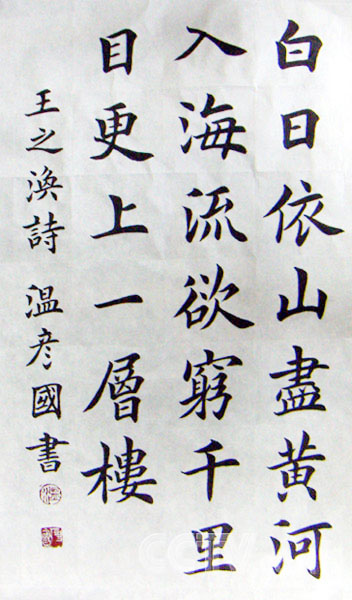 白日依山盡黄河
入海流欲窮千里
目更上一層樓
王之渙詩 温彦國書